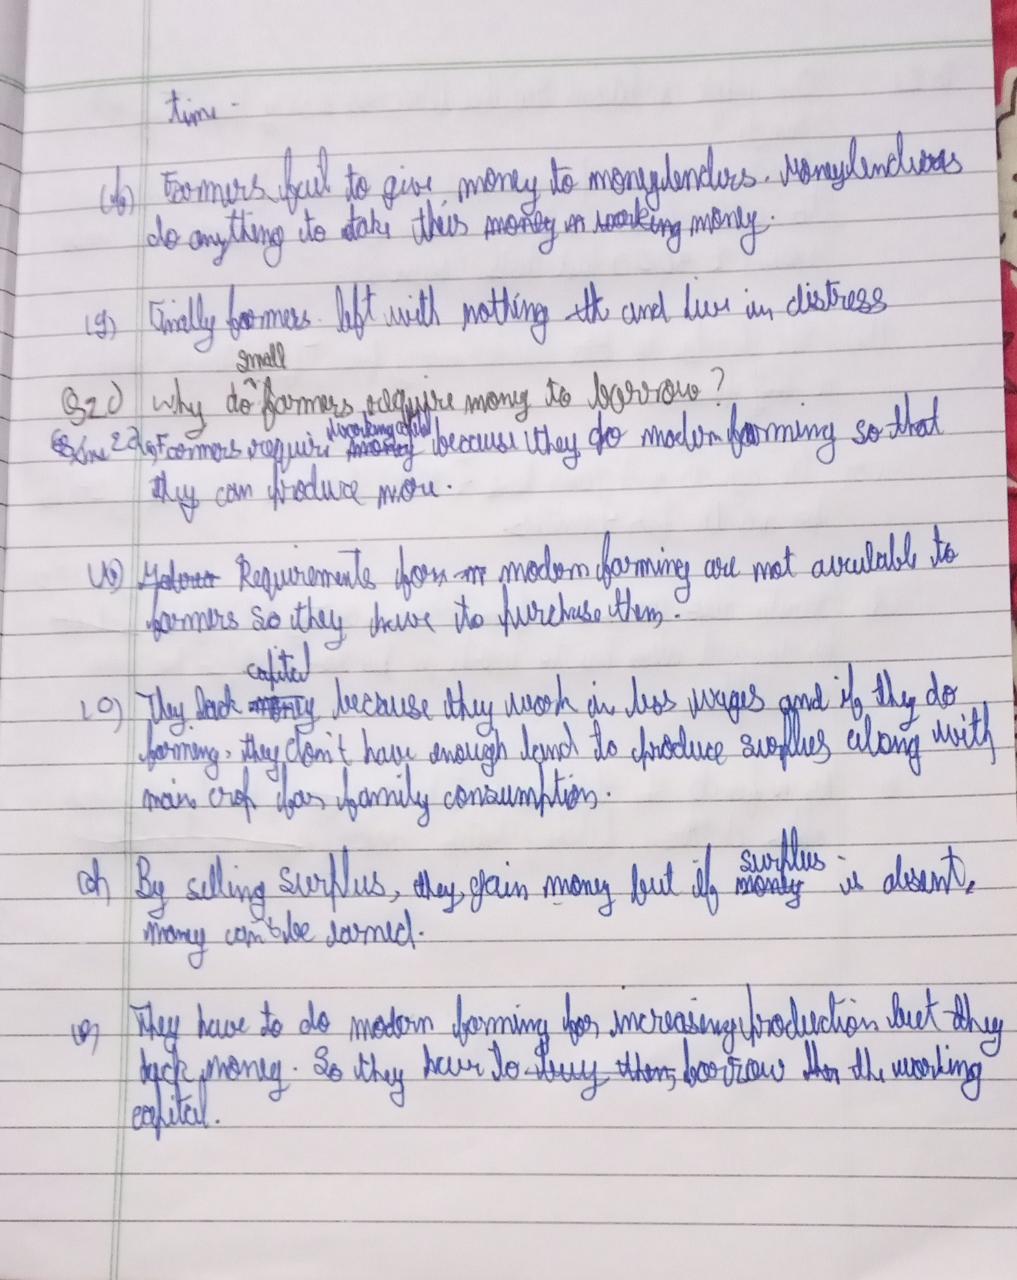 time.
(f) Farmers fail to give money to moneylenders. Moneylenders
do anything to take their money.
(g) Finally farmers left with nothing and live in distress
small
Q2c) Why do farmers require money to borrow?
working capital
Ans 2a) Farmers require because they do modern farming so that
they can produce more.
(b) Requirements for modern farming are not available to
farmers so they have to purchase them.
capital
(c) They lack because they work in less wages and if they do
farming, they don't have enough land to produce surplus along with
main crop for family consumption.
surplus
(d) By selling surplus, they gain money but if is absent,
money can't be earned.
(e) They have to do modern farming for increasing production but they
lack money. So they have to borrow the working
capital.